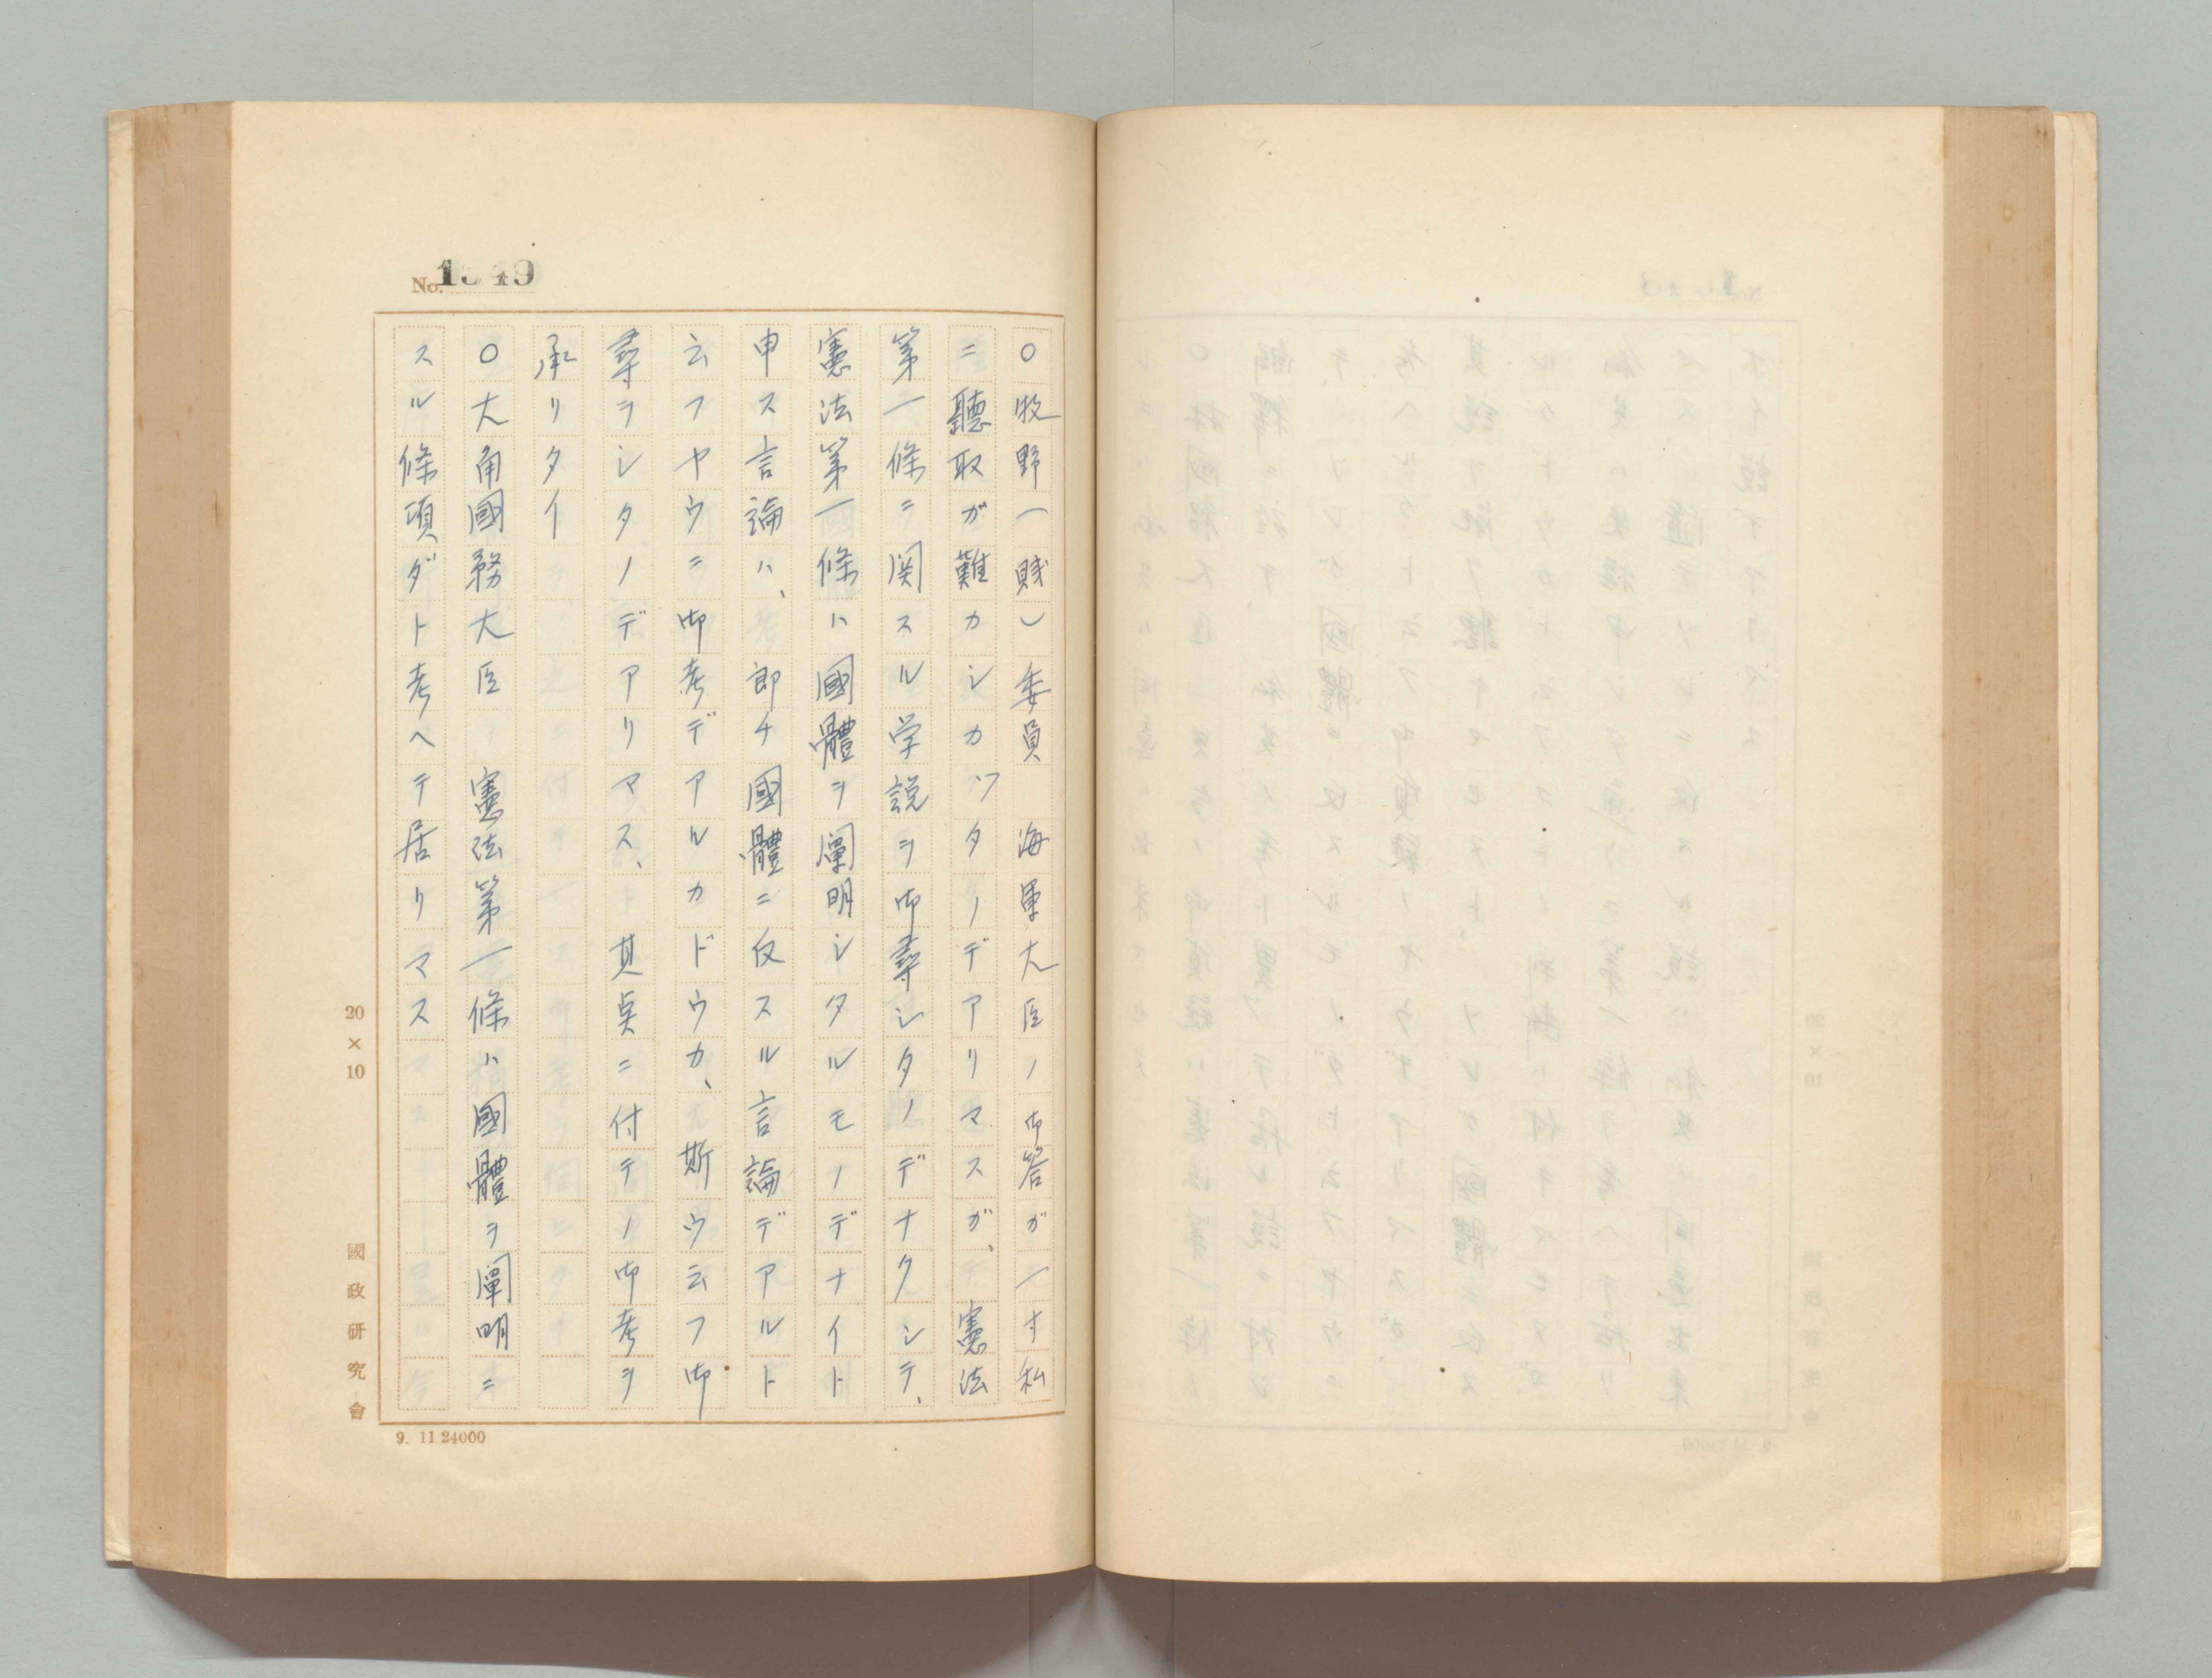 No. 1349
〇牧野(賤)委員　海軍大臣ノ御答ガ一寸私
ニ聽取ガ難カシカツタノデアリマスガ、憲法
第一條ニ関スル学説ヲ御尋シタノデナクシテ、
憲法第一條ハ國體ヲ闡明シタルモノデナイト
申ス言論ハ、即チ國體ニ反スル言論デアルト
云フヤウニ御考デアルカドウカ、斯ウ云フ御
尋ヲシタノデアリマス、其点ニ付テノ御考ヲ
承リタイ
〇大角國務大臣　憲法第一條ハ國體ヲ闡明ニ
スル條項ダト考ヘテ居リマス
20×10
國政研究會
9. 11 24000